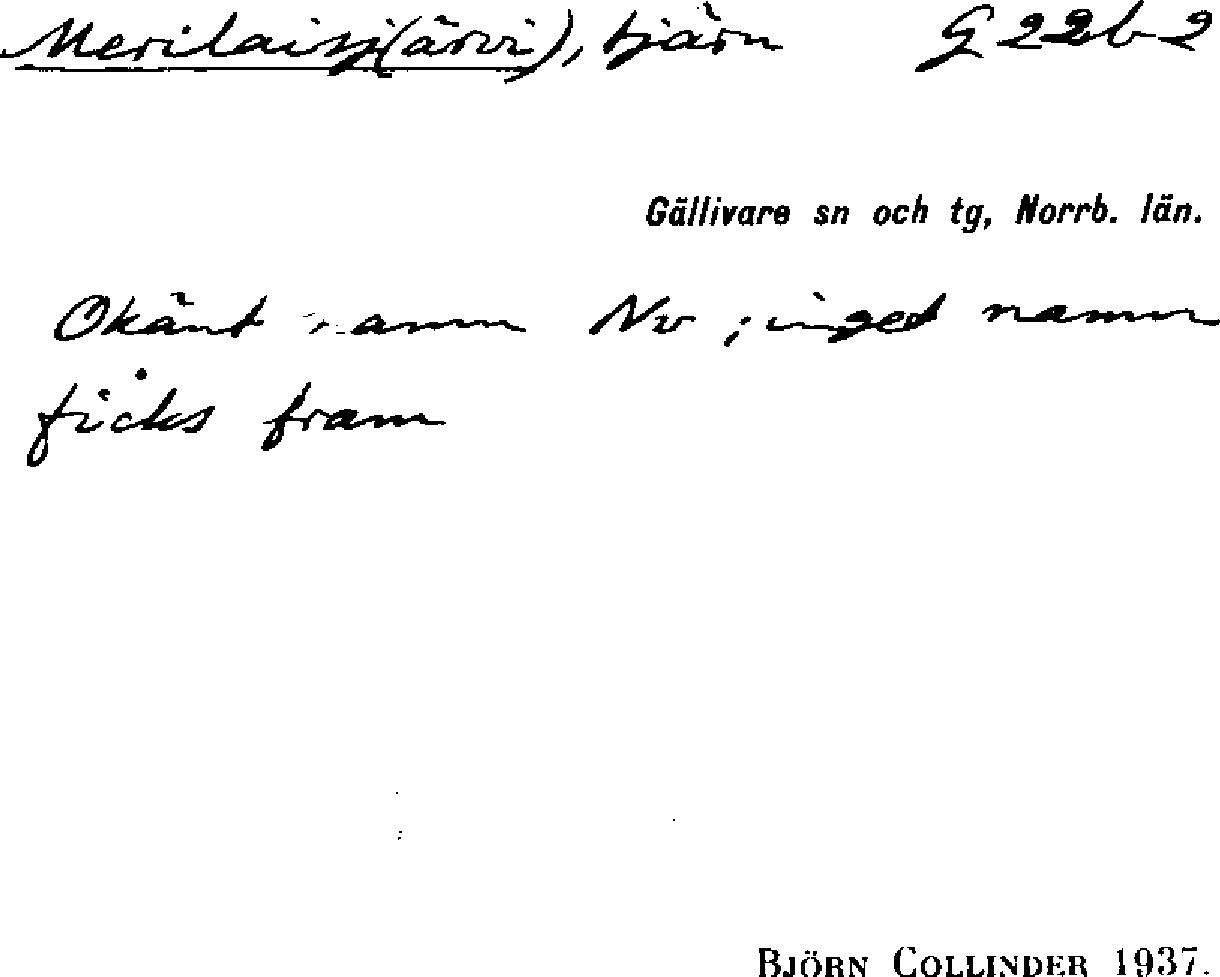 Merilaisj(ärvi), tjärn G 22b2
Gällivare sn och tg, Norrb. län.
Okänt namn Nv ; inget namn
ficks fram
BJÖRN COLLINDER 1937.